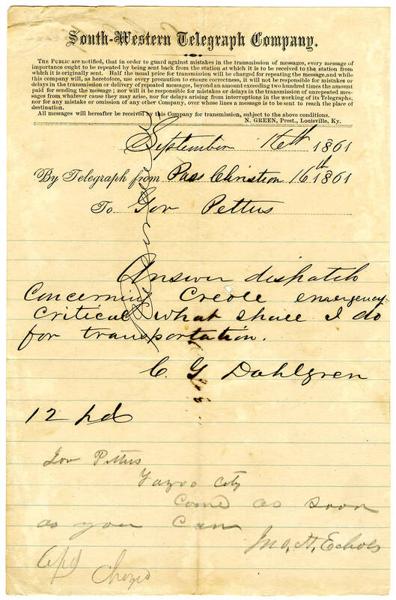 South-Western Telegraph Company.
The Public are notified, that in order to guard against mistakes in the transmission of messages, every message of
importance ought to be repeated by being sent back from the station at which it is to be received to the station from
which it is originally sent. Half the usual price for transmission will be charged for repeating the message, and while
this company will, as heretofore, use every precaution to ensure correctness, it will not be responsible for mistakes or
delays in the transmission or delivery of repeated messages, beyond an amount exceeding two hundred times the amount
paid for sending the message; nor will it be responsible for mistakes or delays in the transmission of unrepeated messages
from whatever cause they may arise, nor for delays arising from interruptions in the working of its Telegraphs,
nor for any mistake or omission of any other Company, over whose lines a message is to be sent to reach the place of
destination.
All messages will hereafter be received by this Company for transmission, subject to the above conditions.
N. GREEN, Prest., Louisville, Ky.
September 16th 1861
By Telegraph from Pass Christian 16th 1861
To Gov Pettus
Answer dispatch
Concerning Creole emergency
Critical what shall I do
for transportation.
C G Dahlgren
12 pd
Gov Pettus
Yazoo City
Come as soon
as you can
Jno. A. Echols